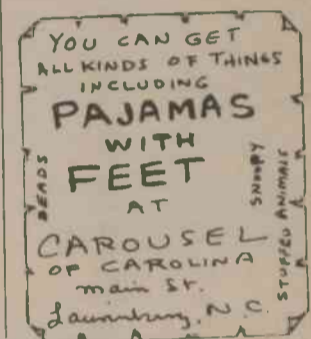 YOU CAN GET
ALL KINDS OF THINGS
INCLUDING
PAJAMAS
WITH
FEET
AT
CAROUSEL
OF CAROLINA
main St.
Laurinburg, N.C.
BEADS
SNOOPY
STUFFED ANIMALS